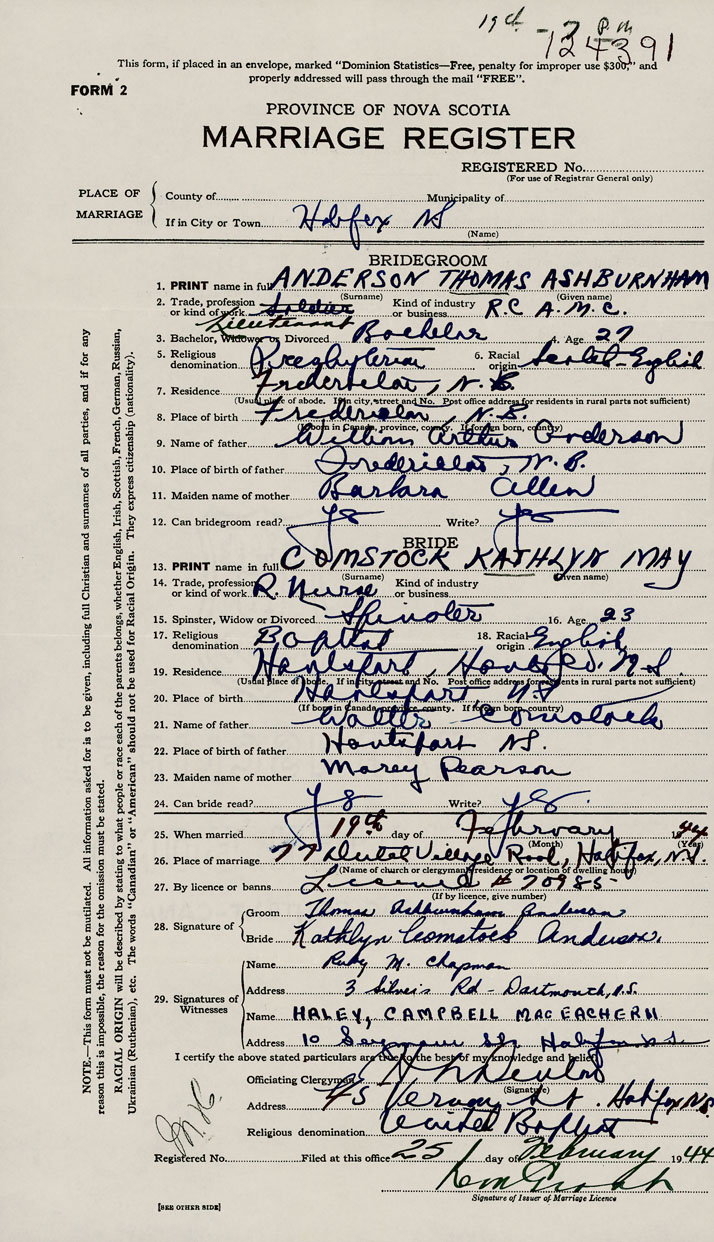 19th - 7 P.M
124391
This form, if placed in an envelope, marked “Dominion Statistics—Free, penalty for improper use $300,” and
properly addressed will pass through the mail “FREE”.
FORM 2
PROVINCE OF NOVA SCOTIA
MARRIAGE REGISTER
REGISTERED No.
(For use of Registrar General only)
PLACE OF MARRIAGE
County of Municipality of
If in City or Town Halifax NS
(Name)
BRIDEGROOM
1. PRINT name in full ANDERSON THOMAS ASHBURNHAM
(Surname) (Given name)
2. Trade, profession or kind of work Soldier Lieutenant Kind of industry or business R.C A.M.C.
3. Bachelor, Widower or Divorced Bachelor 4. Age 27
5. Religious denomination Presbyterian 6. Racial origin Scotch-English
7. Residence Fredericton, N.B.
(Usual place of abode. If in city, street and No. Post office address for residents in rural parts not sufficient)
8. Place of birth Fredericton, N.B.
(If born in Canada, province, county. If foreign born, country)
9. Name of father William Arthur Anderson
10. Place of birth of father Fredericton, N.B.
11. Maiden name of mother Barbara Allen
12. Can bridegroom read? yes Write? yes
BRIDE
13. PRINT name in full COMSTOCK KATHLYN MAY
(Surname) (Given name)
14. Trade, profession or kind of work R. Nurse Kind of industry or business
15. Spinster, Widow or Divorced Spinster 16. Age 23
17. Religious denomination Baptist 18. Racial origin English
19. Residence Hantsport, Hants Co. N.S.
(Usual place of abode. If in city, street and No. Post office address for residents in rural parts not sufficient)
20. Place of birth Hantsport NS
(If born in Canada, province, county. If foreign born, country)
21. Name of father Walter Comstock
22. Place of birth of father Hantsport NS.
23. Maiden name of mother Pearson
24. Can bride read? yes Write? yes
25. When married 19th day of February 1944
(Month) (Year)
26. Place of marriage 77 Dutch Village Road, Halifax, N.S.
(Name of church or clergyman's residence or location of dwelling house)
27. By licence or banns License # 70985
(If by licence, give number)
28. Signature of
Groom Thomas Ashburnham Anderson
Bride Kathlyn Comstock Anderson.
29. Signatures of Witnesses
Name Ruby M. Chapman
Address 3 Rd - Dartmouth, N.S.
Name HALEY, CAMPBELL MACEACHERN
Address 10 Seymour St Halifax N.S.
I certify the above stated particulars are true to the best of my knowledge and belief,
Officiating Clergyman
(Signature)
Address 45 Vernon St. Halifax N.S.
Religious denomination United Baptist
Registered No. Filed at this office 25 day of February 1944
Signature of Issuer of Marriage Licence
[SEE OTHER SIDE]
NOTE.—This form must not be mutilated. All information asked for is to be given, including full Christian and surnames of all parties, and if for any
reason this is impossible, the reason for the omission must be stated.
RACIAL ORIGIN will be described by stating to what people or race each of the parents belongs, whether English, Irish, Scottish, French, German, Russian,
Ukrainian (Ruthenian), etc. The words “Canadian” or “American” should not be used for Racial Origin. They express citizenship (nationality).